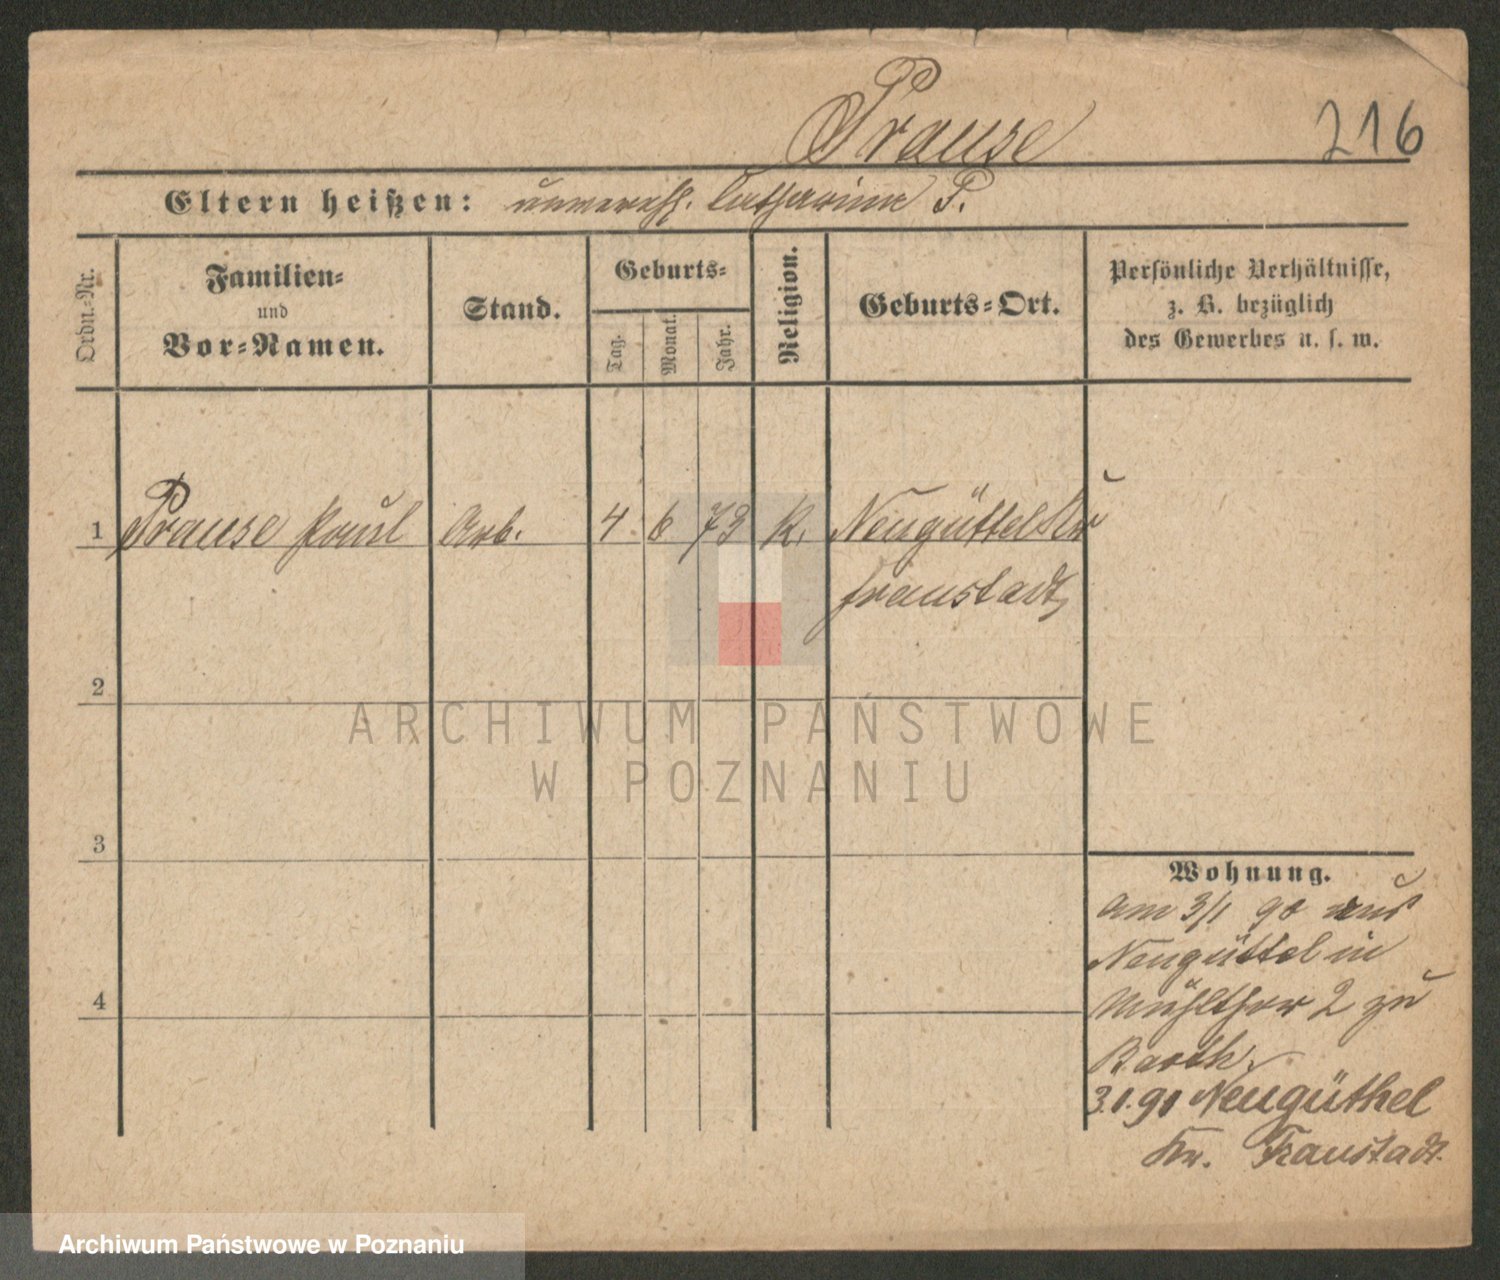 Prause
216
Eltern heißen: unvereh. Catharina P.
Ordn.-Nr.
Familien-
und
Vor-Namen.
Stand.
Geburts-
Tag.
Monat.
Jahr.
Religion.
Geburts-Ort.
Persönliche Verhältnisse,
z. B. bezüglich
des Gewerbes u. s. w.
1 Prause Paul Arb. 4 6 73 K. Neugüttel Kr
Fraustadt
2
3
4
Wohnung.
Am 3/1 90 aus
Neugüttel in
Mühlthor 2 zu
Barth.
3.1.91 Neugüthel
Kr. Fraustadt.
ARCHIWUM PAŃSTWOWE
W POZNANIU
Archiwum Państwowe w Poznaniu